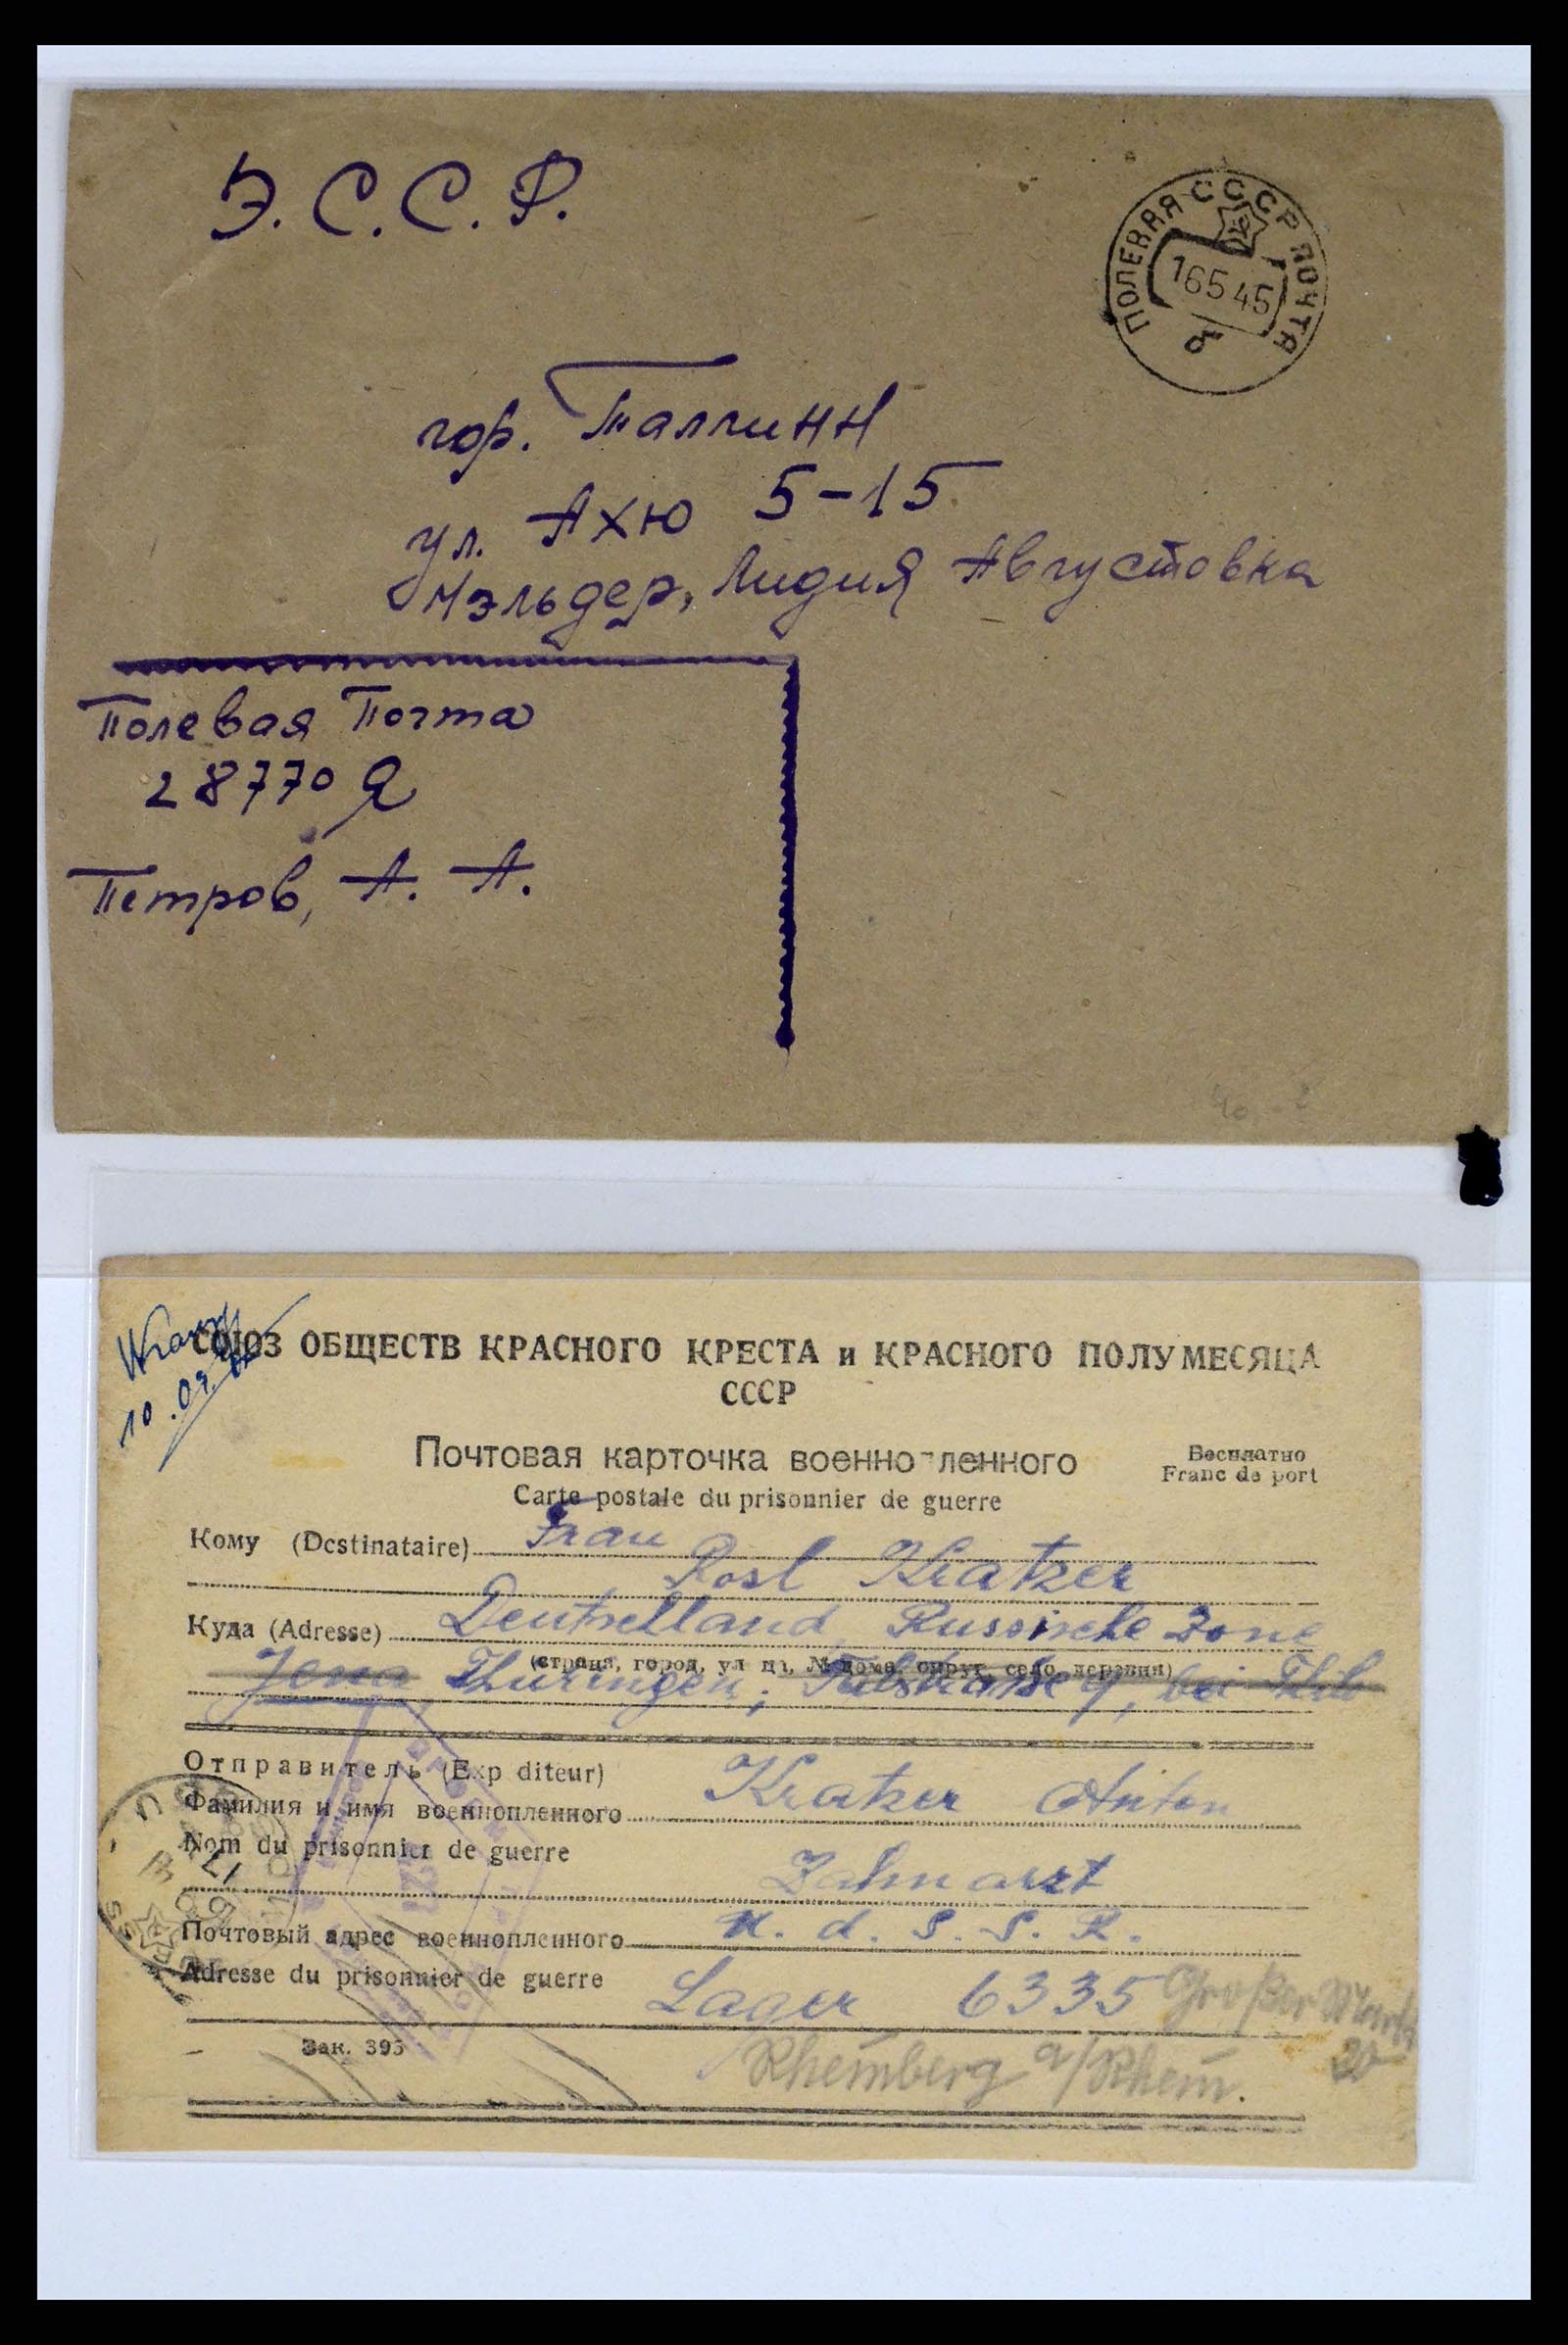 Э.С.С.Р.
ПОЛЕВАЯ СССР ПОЧТА
16 5 45
б
гор. Таллинн
ул. Ахю 5-15
Мэльдер, Лидия Августовна
Полевая Почта
28770 Я
Петров, А. А.
10.09.
СОЮЗ ОБЩЕСТВ КРАСНОГО КРЕСТА и КРАСНОГО ПОЛУМЕСЯЦА
СССР
Почтовая карточка военнопленного
Бесплатно
Carte postale du prisonnier de guerre
Franc de port
Кому (Destinataire) Frau
Rosl Kratzer
Куда (Adresse) Deutschland, Russische Zone
(страна, город, ул ца, № дома, округ, село, деревня)
Jena, Thüringen, bei
Отправитель (Exp diteur)
Фамилия и имя военнопленного Kratzer Anton
Nom du prisonnier de guerre
Zahnarzt
Почтовый адрес военнопленного U. d. S. S. R.
Adresse du prisonnier de guerre
Lager 6335 Großer Markt
20
Зак. 395
Rheinberg a/Rhein.